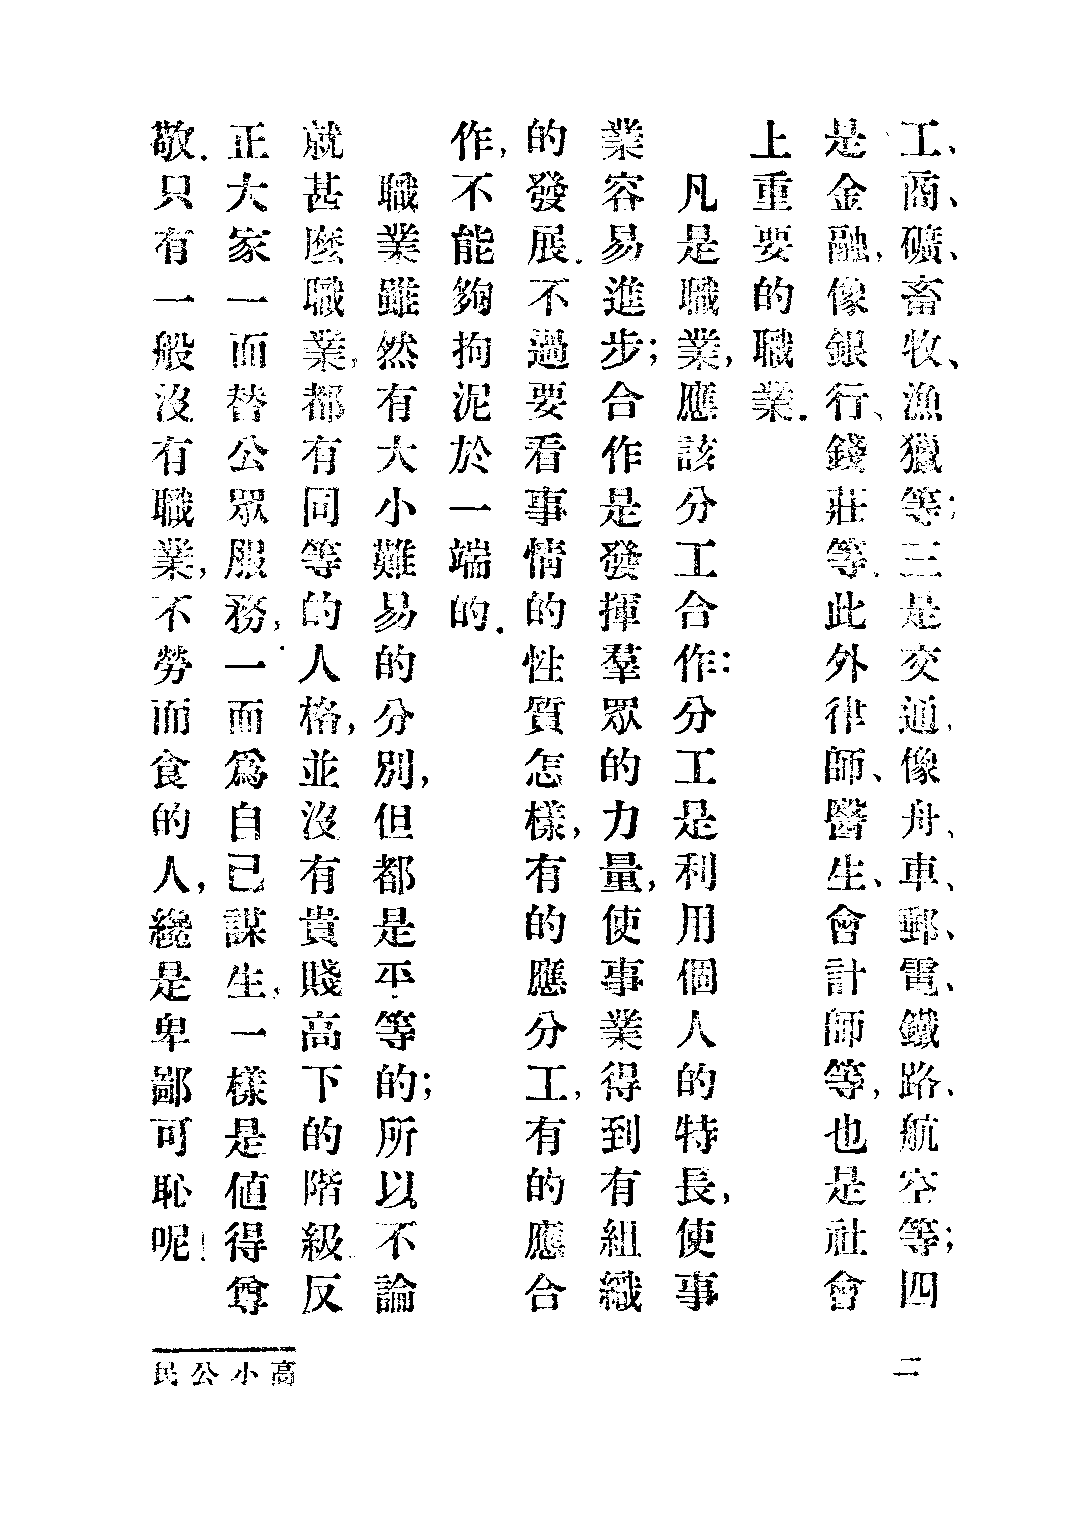 工、商、礦、畜牧、漁獵等;三是交通,像舟、車、郵、電、鐵路、航空等;四
是金融,像銀行、錢莊等.此外律師、醫生、會計師等,也是社會
上重要的職業.
凡是職業,應該分工合作:分工是利用個人的特長,使事
業容易進步;合作是發揮羣眾的力量,使事業得到有組織
的發展.不過要看事情的性質怎樣,有的應分工,有的應合
作,不能夠拘泥於一端的.
職業雖然有大小難易的分別,但都是平等的;所以不論
就甚麼職業,都有同等的人格,並沒有貴賤高下的階級.反
正大家一面替公眾服務,一面爲自己謀生,一樣是値得尊
敬.只有一般沒有職業,不勞而食的人,纔是卑鄙可恥呢!
二
高小公民